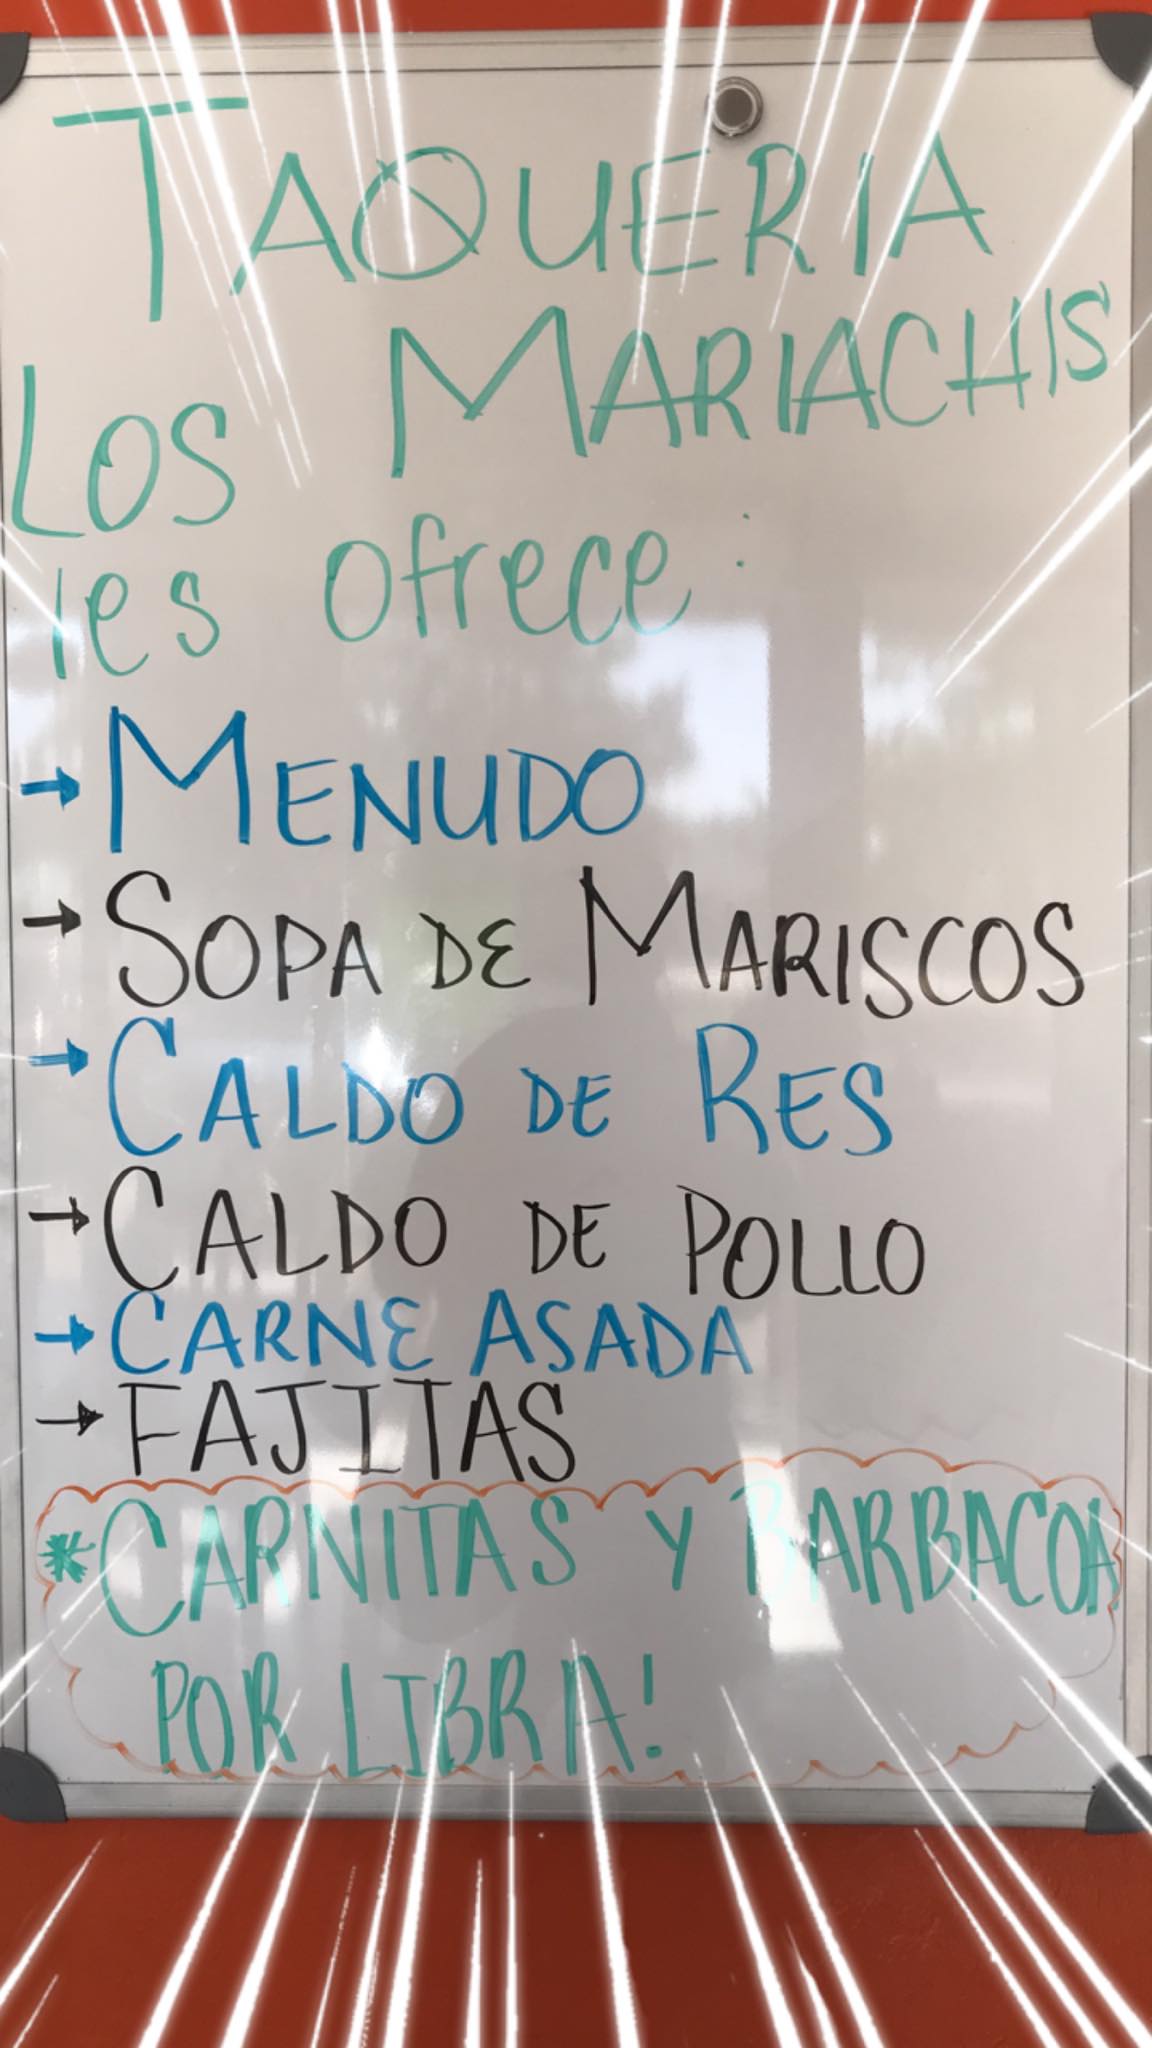 TAQUERIA
LOS MARIACHIS
les ofrece:
→ MENUDO
→ SOPA DE MARISCOS
→ CALDO DE RES
→ CALDO DE POLLO
→ CARNE ASADA
→ FAJITAS
* CARNITAS Y BARBACOA
POR LIBRA!